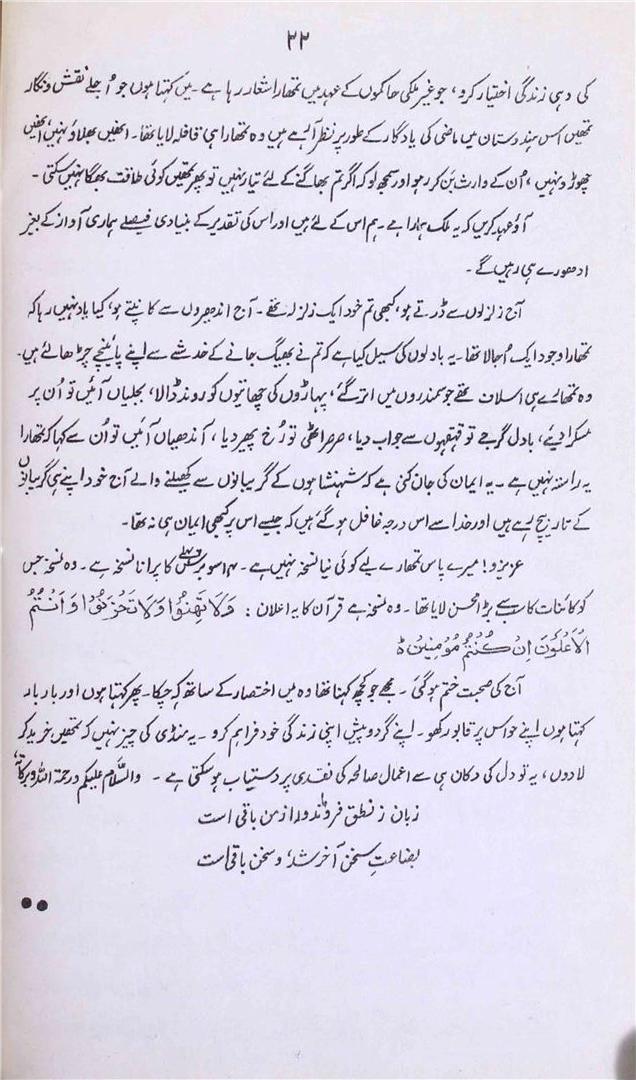 ۲۲
کی وہی زندگی اختیار کرو، جو غیر ملکی حاکموں کے عہد میں تمھارا شعار رہا ہے۔ میں کہتا ہوں جو اُجلے نقش و نگار
تمھیں اس ہندوستان میں ماضی کی یادگار کے طور پر نظر آرہے ہیں وہ تمھارا ہی قافلہ لایا تھا۔ انھیں بھلاؤ نہیں، انھیں
چھوڑو نہیں، اُن کے وارث بن کر رہو اور سمجھ لو کہ اگر تم بھاگنے کے لئے تیار نہیں تو پھر تمھیں کوئی طاقت بھگا نہیں سکتی۔
آؤ عہد کریں کہ یہ ملک ہمارا ہے۔ ہم اس کے لئے ہیں اور اس کی تقدیر کے بنیادی فیصلے ہماری آواز کے بغیر
ادھورے ہی رہیں گے۔
آج زلزلوں سے ڈرتے ہو، کبھی تم خود ایک زلزلہ تھے۔ آج اندھیروں سے کانپتے ہو، کیا یاد نہیں رہا کہ
تمھارا وجود ایک اُجالا تھا۔ یہ بادلوں کی سیل کیا ہے کہ تم نے بھیگ جانے کے خدشے سے اپنے پائینچے چڑھالئے ہیں۔
وہ تمھارے ہی اسلاف تھے جو سمندروں میں اتر گئے، پہاڑوں کی چھاتیوں کو روند ڈالا، بجلیاں آئیں تو اُن پر
مسکرا دیئے، بادل گرجے تو قہقہوں سے جواب دیا، صرصر اٹھی تو رُخ پھیر دیا، آندھیاں آئیں تو اُن سے کہا کہ تمھارا
یہ راستہ نہیں ہے۔ یہ ایمان کی جان کنی ہے کہ شہنشاہوں کے گریبانوں سے کھیلنے والے آج خود اپنے ہی گریبانوں
کے تار بیچ رہے ہیں اور خدا سے اس درجہ غافل ہو گئے ہیں کہ جیسے اس پر کبھی ایمان ہی نہ تھا۔
عزیزو! میرے پاس تمھارے لیے کوئی نیا نسخہ نہیں ہے۔ ۱۴سو برس پہلے کا پرانا نسخہ ہے۔ وہ نسخہ جس
کو کائنات کا سب سے بڑا محسن لایا تھا۔ وہ نسخہ ہے قرآن کا یہ اعلان: وَلَا تَهِنُوا وَلَا تَحْزَنُوا وَأَنْتُمُ
الْأَعْلَوْنَ إِنْ كُنْتُمْ مُؤْمِنِينَ ط
آج کی صحبت ختم ہوگئی۔ مجھے جو کچھ کہنا تھا وہ میں اختصار کے ساتھ کہہ چکا۔ پھر کہتا ہوں اور بار بار
کہتا ہوں اپنے حواس پر قابو رکھو۔ اپنے گردوپیش اپنی زندگی خود فراہم کرو۔ یہ منڈی کی چیز نہیں کہ تمھیں خرید کر
لا دوں، یہ تو دل کی دکان ہی سے اعمال صالحہ کی نقدی پر دستیاب ہوسکتی ہے۔ والسَّلام علیکم ورحمۃ اللہ وبرکاتہٗ
زبان ز نطق فروماند و راز من باقی است
بضاعتِ سخن آخر شد، و سخن باقی است